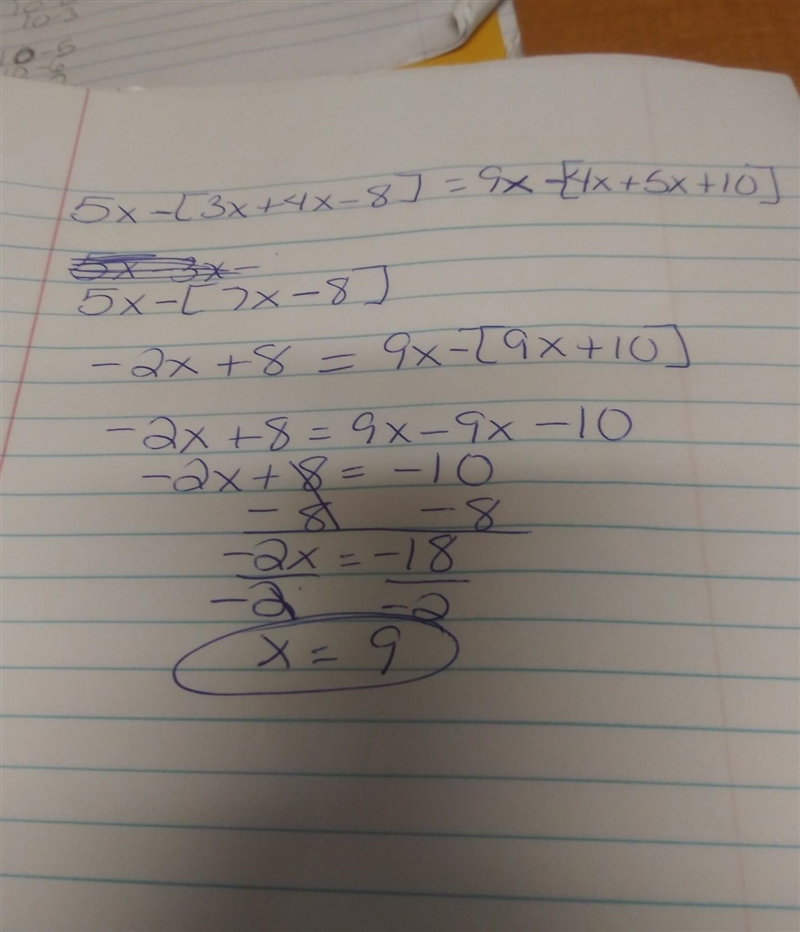 5x-[3x+4x-8]=9x-[4x+5x+10]
5x-3x-
5x-[7x-8]
-2x+8=9x-[9x+10]
-2x+8=9x-9x-10
-2x+8=-10
-8 -8
-2x=-18
-2 -2
x=9